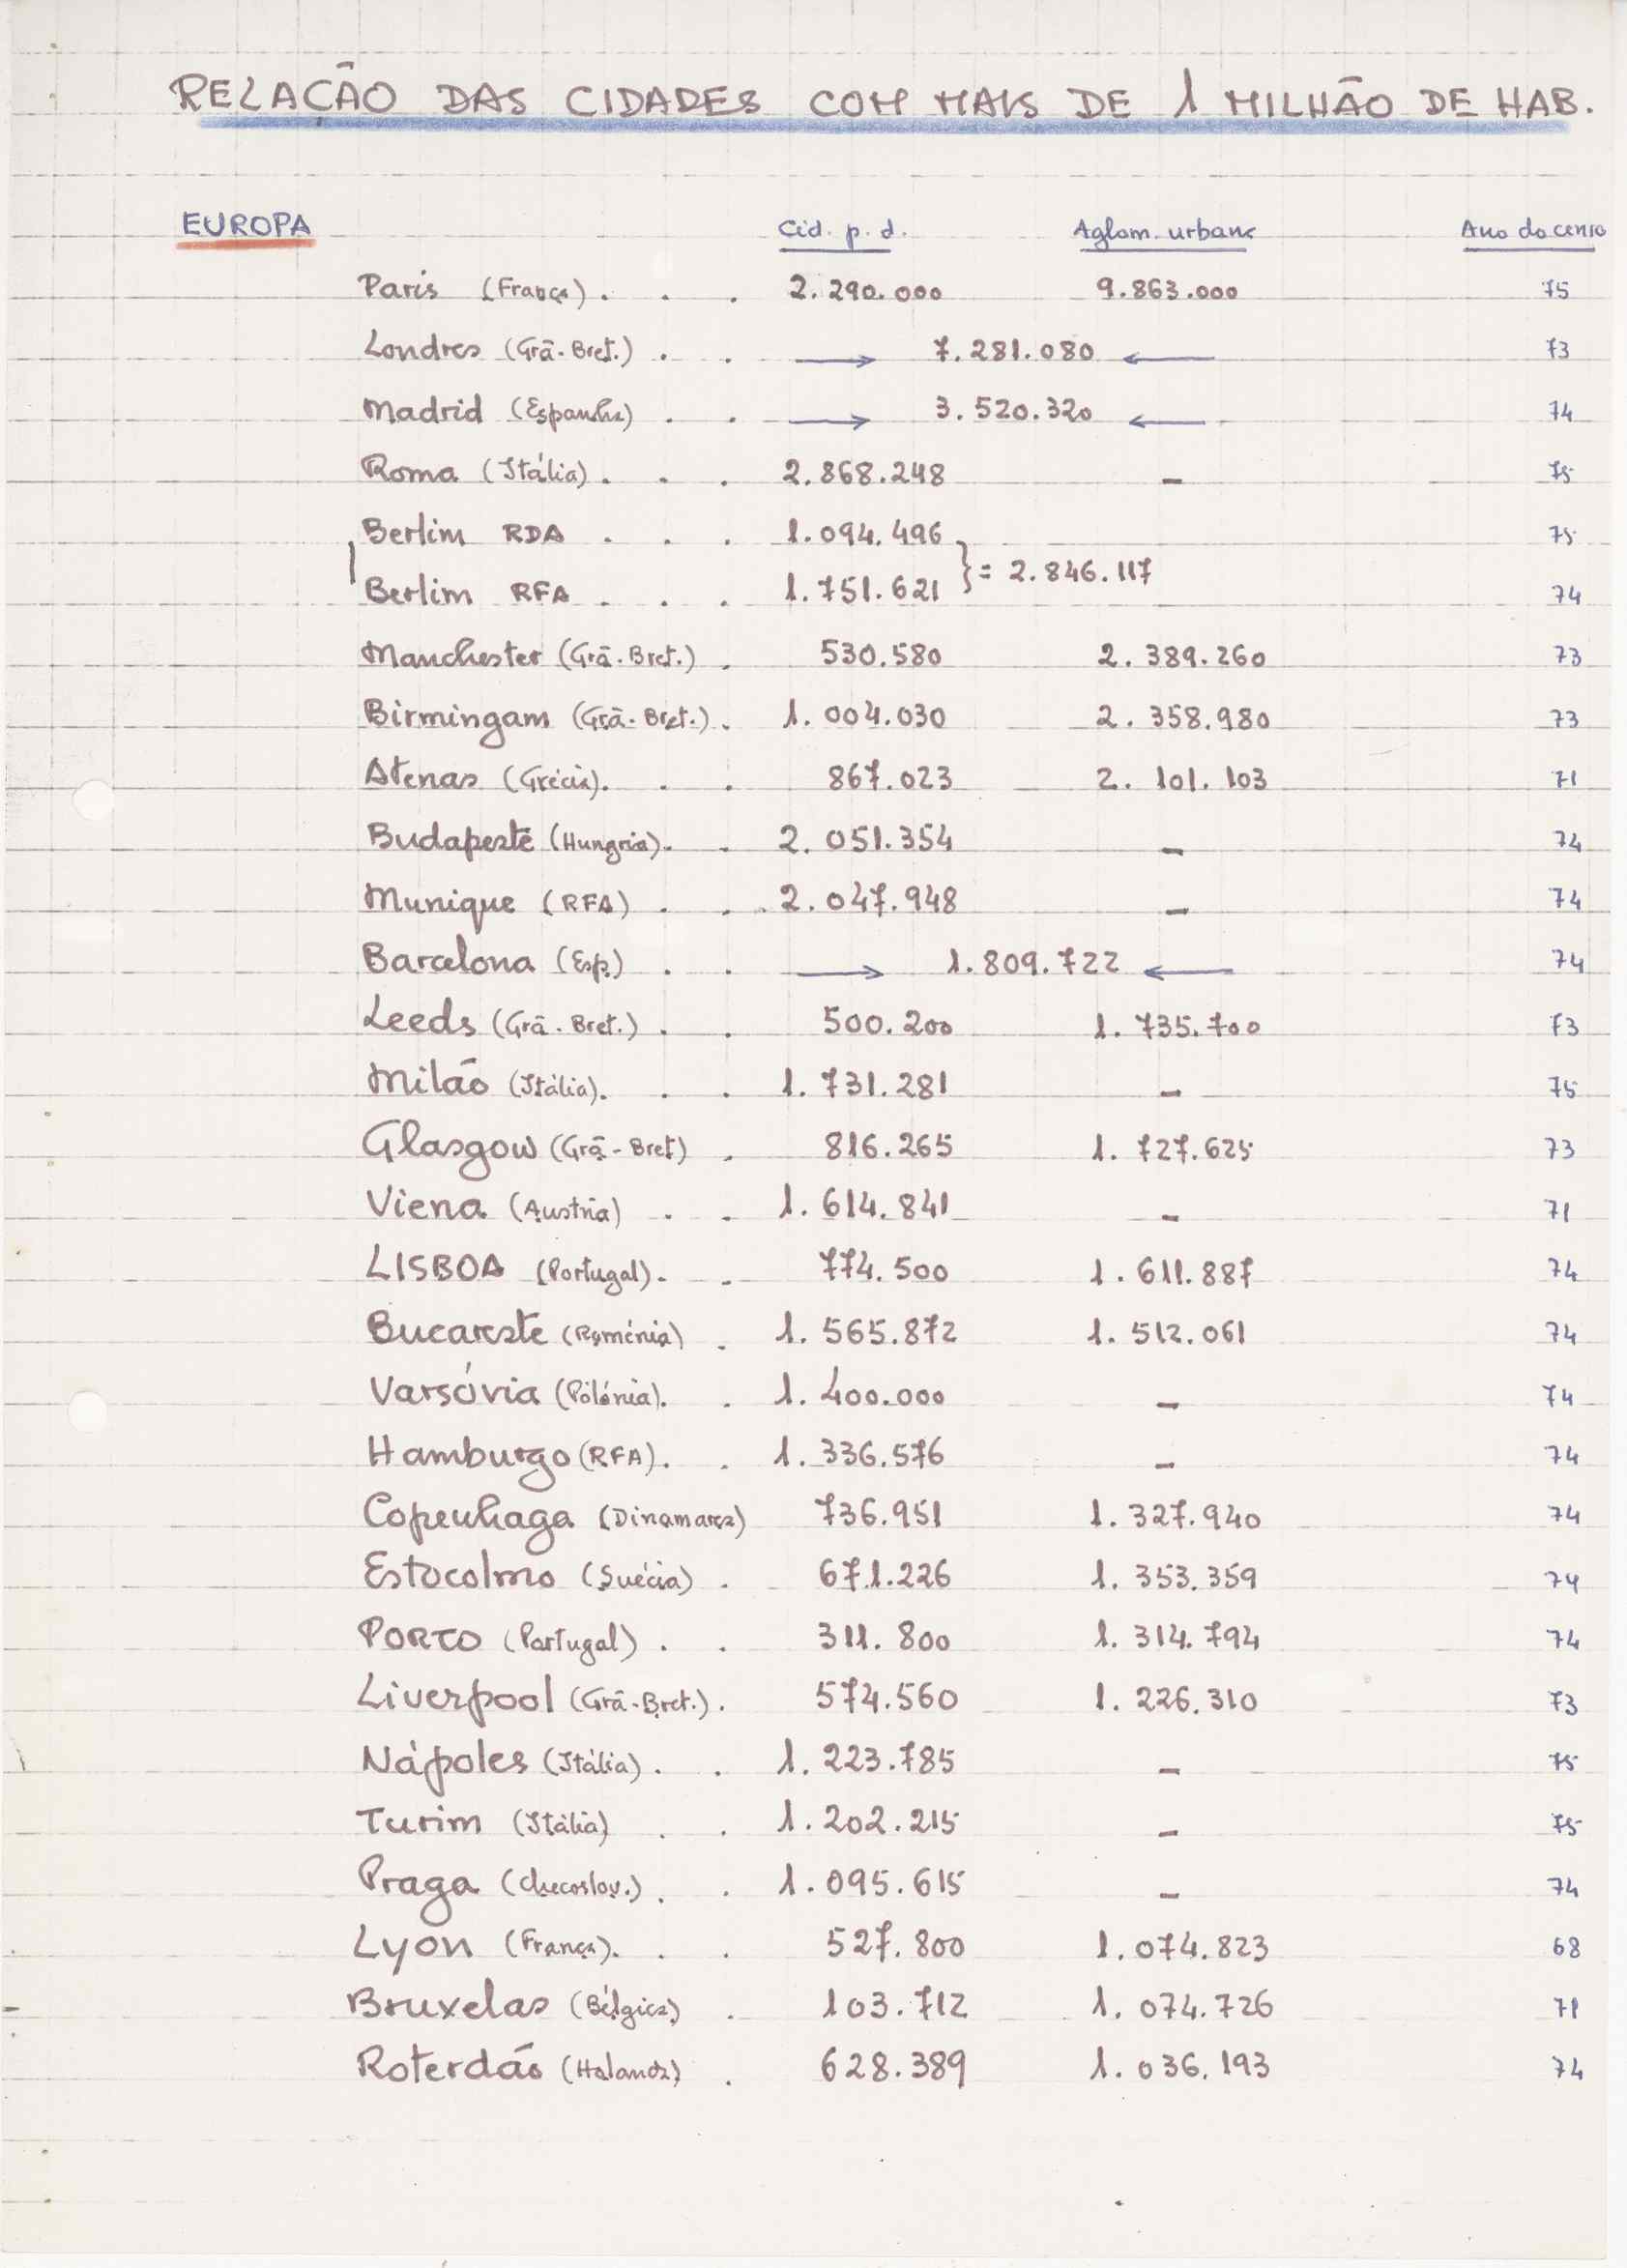 RELAÇÃO DAS CIDADES COM MAIS DE 1 MILHÃO DE HAB.
EUROPA Cid. p. d. Aglom. urbana Ano do censo
Paris (França) . . . 2.290.000 9.863.000 75
Londres (Grã-Bret.) . . → 7.281.080 ← 73
Madrid (Espanha) . . → 3.520.320 ← 74
Roma (Itália) . . . 2.868.248 - 75
Berlim RDA . . . 1.094.496 75
} = 2.846.117
Berlim RFA . . . 1.751.621 74
Manchester (Grã-Bret.) . 530.580 2.389.260 73
Birmingam (Grã-Bret.) . 1.004.030 2.358.980 73
Atenas (Grécia) . . . 867.023 2.101.103 71
Budapeste (Hungria) . . 2.051.354 - 74
Munique (RFA) . . . 2.047.948 - 74
Barcelona (Esp.) . . → 1.809.722 ← 74
Leeds (Grã-Bret.) . . 500.200 1.735.700 73
Milão (Itália) . . . 1.731.281 - 75
Glasgow (Grã-Bret) . 816.265 1.727.625 73
Viena (Austria) . . 1.614.841 - 71
LISBOA (Portugal) . . 774.500 1.611.887 74
Bucareste (Roménia) . 1.565.872 1.512.061 74
Varsóvia (Polónia) . . 1.400.000 - 74
Hamburgo (RFA) . . 1.336.576 - 74
Copenhaga (Dinamarca) 736.951 1.327.940 74
Estocolmo (Suécia) . 671.226 1.353.359 74
PORTO (Portugal) . . 311.800 1.314.794 74
Liverpool (Grã-Bret.) . 574.560 1.226.310 73
Nápoles (Itália) . . 1.223.785 - 75
Turim (Itália) . . 1.202.215 - 75
Praga (Checoslov.) . . 1.095.615 - 74
Lyon (França) . . . 527.800 1.074.823 68
Bruxelas (Bélgica) . 103.712 1.074.726 71
Roterdão (Holanda) . 628.389 1.036.193 74